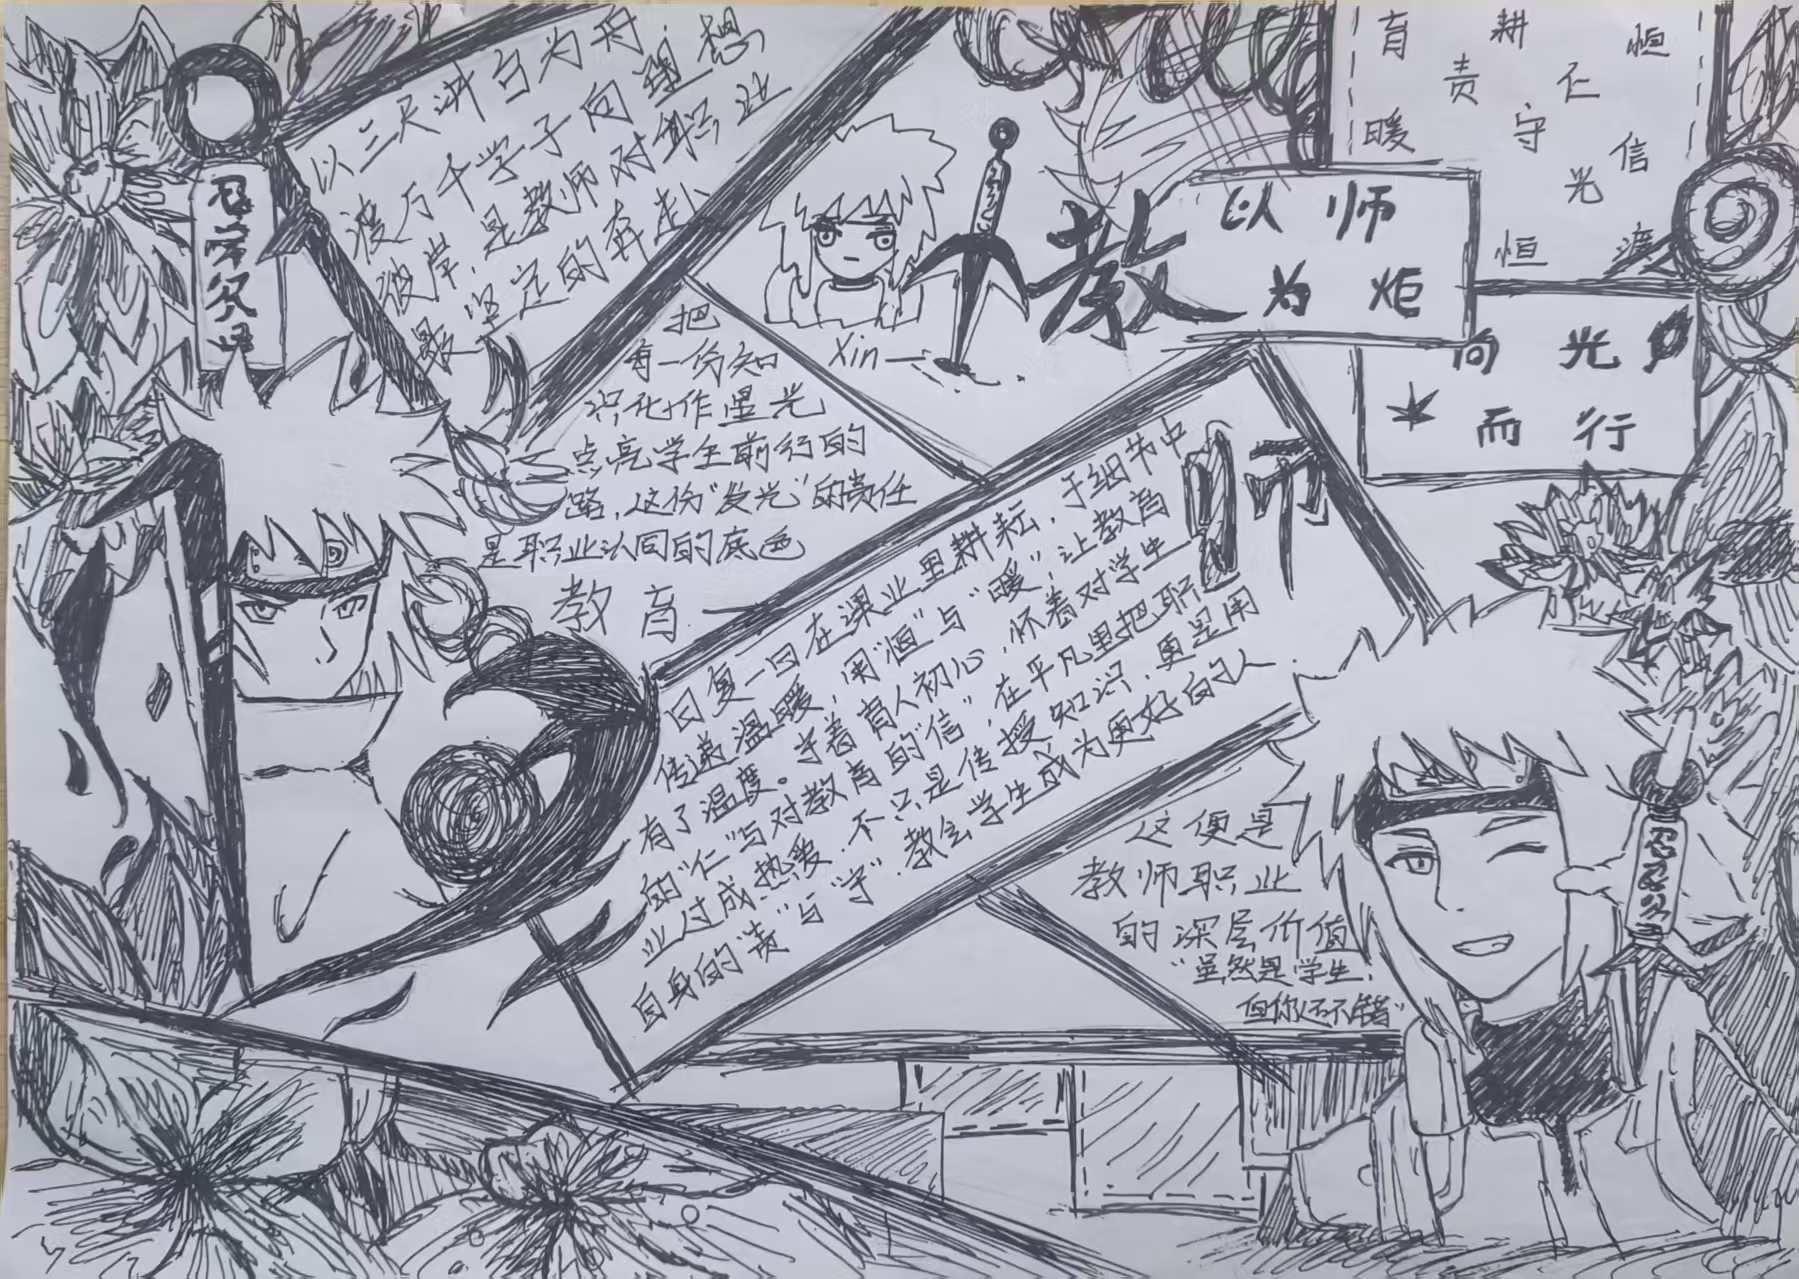 以三尺讲台为舟
渡万千学子向理想
彼岸,是教师对职业
最坚定的奔赴
把
每一份知
识化作星光
点亮学生前行的
路,这份“发光”的责任
是职业认同的底色
教育
Xin
教师
以师
为炬
向光
而行
育 耕 恒
责 仁
暖 守 信
光
恒 渡
日复一日在课业里耕耘,于细节中
传递温暖,用“恒”与“暖”,让教育
有了温度。守着育人初心,怀着对学生
的“仁”与对教育的“信”,在平凡里把职
业过成热爱,不只是传授知识,更是用
自身的“责”与“守”教会学生成为更好的人
这便是
教师职业
的深层价值
“虽然是学生,
但你还不错”